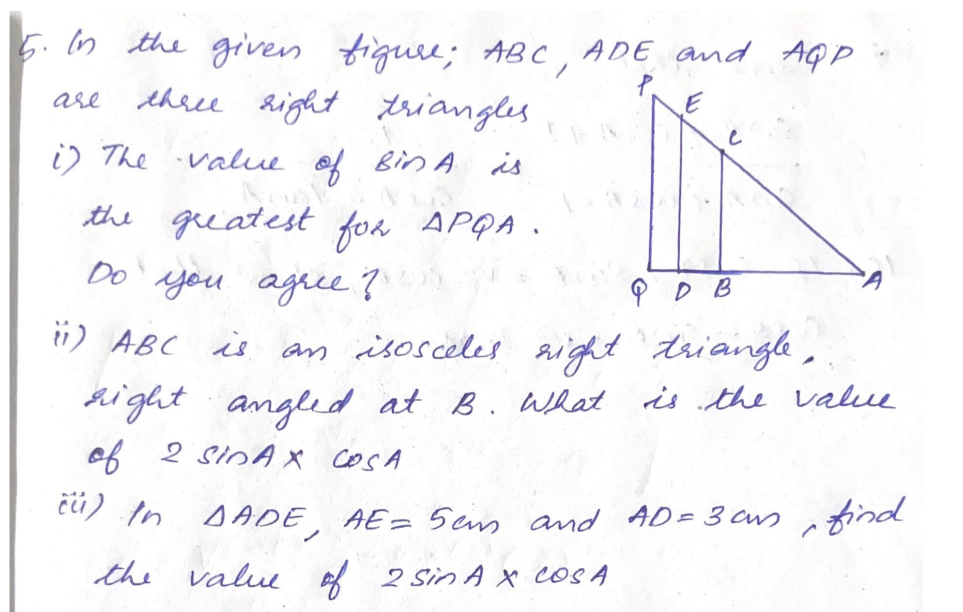 5. In the given figure; ABC, ADE and AQP
are three right triangles
i) The value of sin A is
the greatest for △PQA.
Do you agree?
P
E
C
Q D B
A
ii) ABC is an isosceles right triangle,
right angled at B. What is the value
of 2 sinA x cosA
iii) In △ADE, AE= 5cm and AD=3cm, find
the value of 2 sin A x cos A